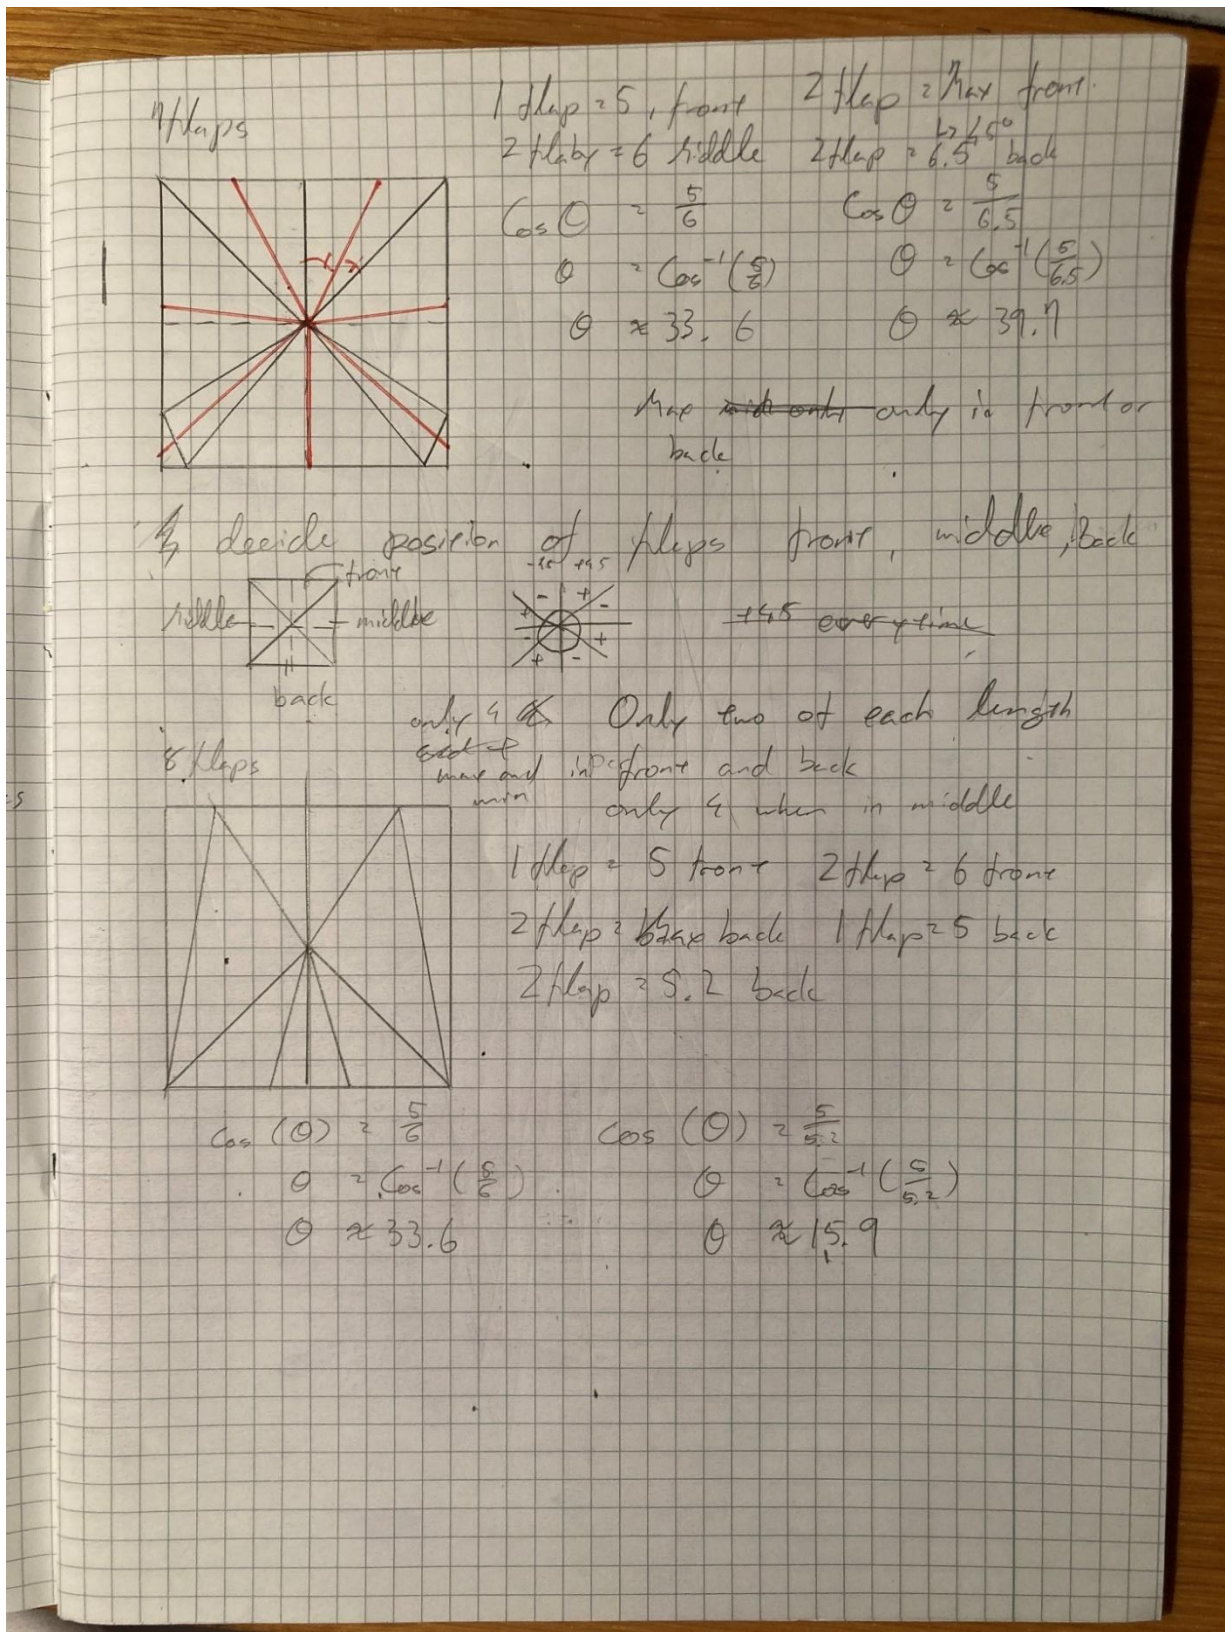 7 flaps
1 flap = 5, front 2 flap = Max front.
↳ 45°
2 flaby = 6 middle 2 flap = 6.5 back
Cos θ = 5/6 Cos θ = 5/6.5
θ = Cos⁻¹(5/6) θ = Cos⁻¹(5/6.5)
θ ≈ 33.6 θ ≈ 39.7
Max only in front or
back
decide position of flaps front, middle, back
front
middle middle
back
+45 every time
- +
+ -
- +
+ -
only 4 Only two of each length
8 flaps
max and
min
in front and back
only 4 when in middle
1 flap = 5 front 2 flap = 6 front
2 flap = Max back 1 flap = 5 back
2 flap = 5.2 back
cos (θ) = 5/6 cos (θ) = 5/5.2
θ = Cos⁻¹(5/6) θ = Cos⁻¹(5/5.2)
θ ≈ 33.6 θ ≈ 15.9